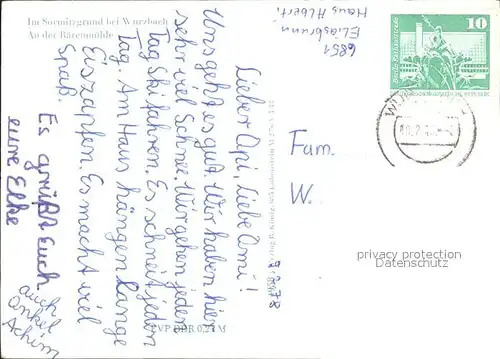 Im Sormitzgrund bei Wurzbach
An der Bärenmühle
6851
Eliasbrunn
Haus Albert
Lieber Opi, Liebe Omi!
Uns geht es gut. Wir haben hier
sehr viel Schnee. Wir gehen jeden
Tag Ski fahren. Es schneit jeden
Tag. Am Haus hängen lange
Eiszapfen. Es macht viel
Spaß.
Es grüßt Euch
eure Elke
auch
Onkel
Achim
10
Fam.
W.
privacy protection
Datenschutz
EVP DDR 0,20 M